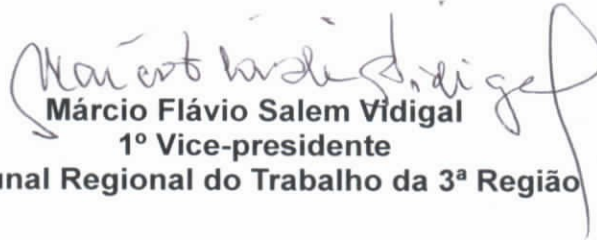 Márcio Flávio Salem Vidigal
1º Vice-presidente
unal Regional do Trabalho da 3ª Região